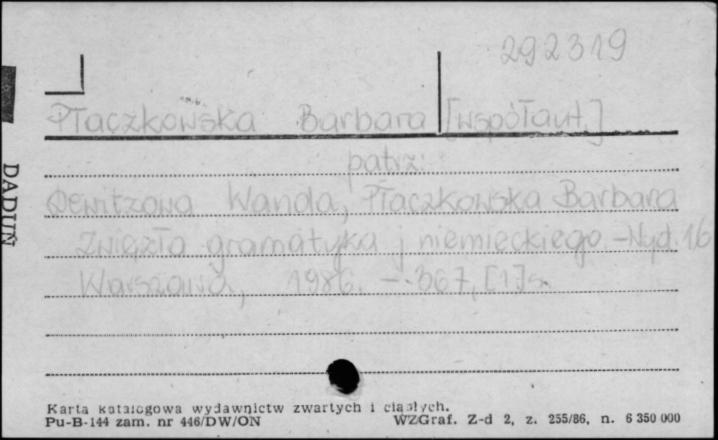 292319
Płaczkowska Barbara [współaut.]
patrz:
Dewitzowa Wanda, Płaczkowska Barbara
Zwięzła gramatyka j niemieckiego. -Wyd. 16
Warszawa, 1986. - 367, [1] s.
DADUŃ
Karta katalogowa wydawnictw zwartych i ciągłych.
Pu-B-144 zam. nr 446/DW/ON WZGraf. Z-d 2, z. 255/86, n. 6 350 000